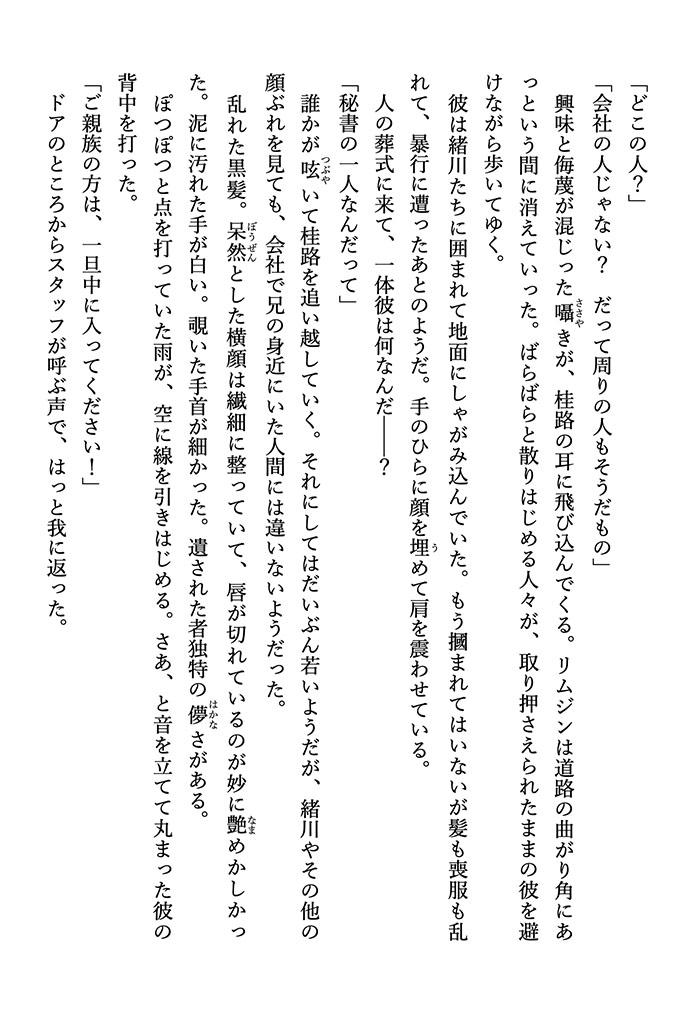 「どこの人？」
「会社の人じゃない？　だって周りの人もそうだもの」
　興味と侮蔑が混じった囁きが、桂路の耳に飛び込んでくる。リムジンは道路の曲がり角にあ
っという間に消えていった。ばらばらと散りはじめる人々が、取り押さえられたままの彼を避
けながら歩いてゆく。
　彼は緒川たちに囲まれて地面にしゃがみ込んでいた。もう摑まれてはいないが髪も喪服も乱
れて、暴行に遭ったあとのようだ。手のひらに顔を埋めて肩を震わせている。
　人の葬式に来て、一体彼は何なんだ――？
「秘書の一人なんだって」
　誰かが呟いて桂路を追い越していく。それにしてはだいぶん若いようだが、緒川やその他の
顔ぶれを見ても、会社で兄の身近にいた人間には違いないようだった。
　乱れた黒髪。呆然とした横顔は繊細に整っていて、唇が切れているのが妙に艶めかしかっ
た。泥に汚れた手が白い。覗いた手首が細かった。遺された者独特の儚さがある。
　ぽつぽつと点を打っていた雨が、空に線を引きはじめる。さあ、と音を立てて丸まった彼の
背中を打った。
「ご親族の方は、一旦中に入ってください！」
　ドアのところからスタッフが呼ぶ声で、はっと我に返った。